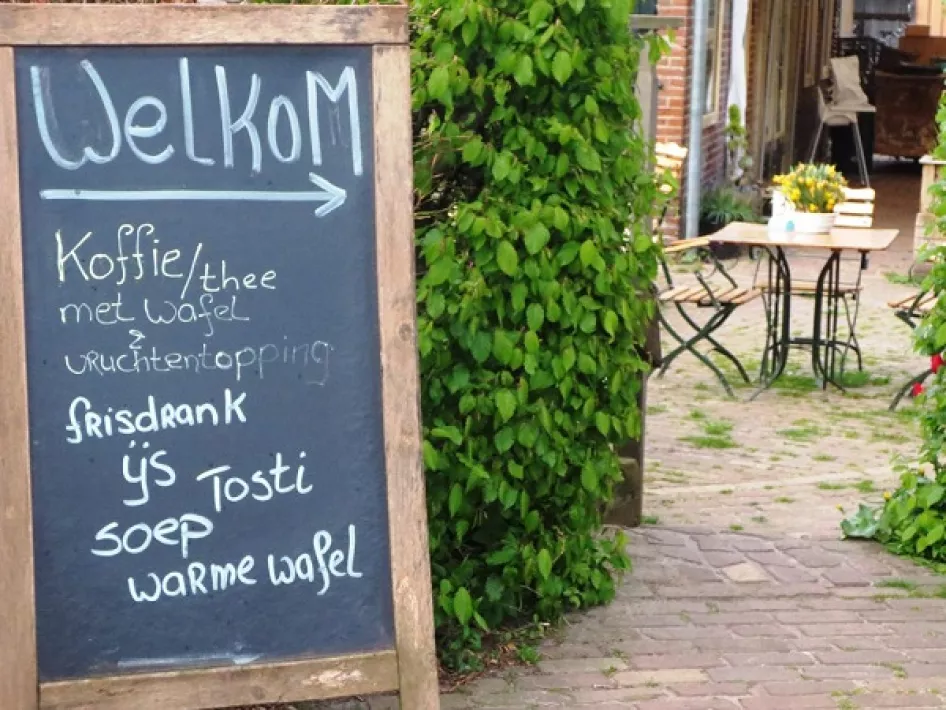 Welkom
Koffie/thee
met wafel
&
vruchtentopping
frisdrank
ijs
Tosti
soep
warme wafel